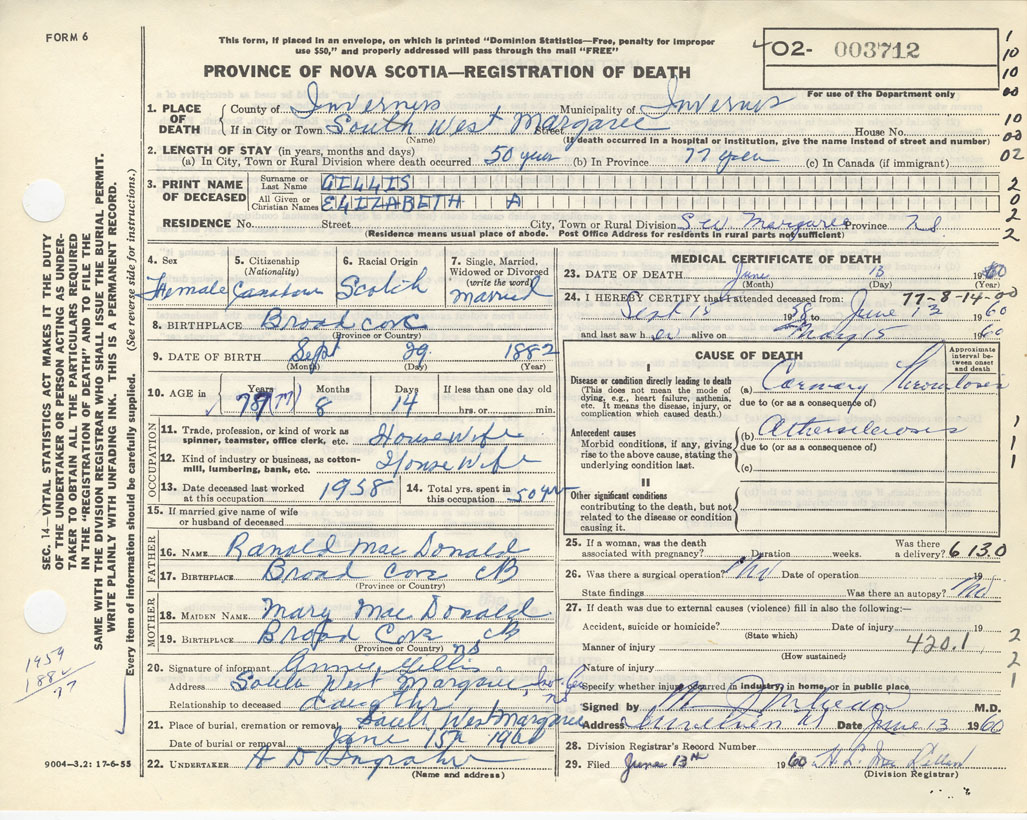 FORM 6
This form, if placed in an envelope, on which is printed "Dominion Statistics—Free, penalty for improper
use $50," and properly addressed will pass through the mail "FREE"
O2- 003712
For use of the Department only
PROVINCE OF NOVA SCOTIA—REGISTRATION OF DEATH
1. PLACE OF DEATH
County of Inverness Municipality of Inverness
If in City or Town South West Margaree Street House No.
(Name) (If death occurred in a hospital or institution, give the name instead of street and number)
2. LENGTH OF STAY (in years, months and days)
(a) In City, Town or Rural Division where death occurred 50 year (b) In Province 77 years (c) In Canada (if immigrant)
3. PRINT NAME OF DECEASED
Surname or Last Name GILLIS
All Given or Christian Names ELIZABETH A
RESIDENCE No. Street City, Town or Rural Division S W Margaree Province N S
(Residence means usual place of abode. Post Office Address for residents in rural parts not sufficient)
4. Sex Female
5. Citizenship (Nationality) Canadian
6. Racial Origin Scotish
7. Single, Married, Widowed or Divorced (write the word) Married
8. BIRTHPLACE Broad Cove
(Province or Country)
9. DATE OF BIRTH Sept 29 1882
(Month) (Day) (Year)
10. AGE in Years 77 Months 8 Days 14 If less than one day old
hrs. or min.
OCCUPATION
11. Trade, profession, or kind of work as spinner, teamster, office clerk, etc. House Wife
12. Kind of industry or business, as cotton-mill, lumbering, bank, etc. House Wife
13. Date deceased last worked at this occupation 1958
14. Total yrs. spent in this occupation 50 yr
15. If married give name of wife or husband of deceased
FATHER
16. NAME Ranald Mac Donald
17. BIRTHPLACE Broad Cove CB
(Province or Country)
MOTHER
18. MAIDEN NAME Mary Mac Donald
19. BIRTHPLACE Broad Cove CB
(Province or Country) NS
20. Signature of informant Annie Gillis
Address South West Margaree, Inv. Co. NS
Relationship to deceased Daughter
21. Place of burial, cremation or removal South West Margaree
Date of burial or removal June 15th 1960
22. UNDERTAKER A D Ingraham
(Name and address)
9004—3.2: 17-6-55
MEDICAL CERTIFICATE OF DEATH
23. DATE OF DEATH June 13 1960
(Month) (Day) (Year)
77-8-14-00
24. I HEREBY CERTIFY that I attended deceased from:
Sept 15 1958 to June 13 1960
and last saw her alive on May 15 1960
CAUSE OF DEATH
Approximate interval between onset and death
I
Disease or condition directly leading to death
(This does not mean the mode of dying, e.g., heart failure, asthenia, etc. It means the disease, injury, or complication which caused death.)
(a) Coronary Thrombosis
due to (or as a consequence of)
Antecedent causes
Morbid conditions, if any, giving rise to the above cause, stating the underlying condition last.
(b) Atherosclerosis
due to (or as a consequence of)
(c)
II
Other significant conditions
contributing to the death, but not related to the disease or condition causing it.
25. If a woman, was the death associated with pregnancy? Duration weeks. Was there a delivery? 6130
26. Was there a surgical operation? No Date of operation 19
State findings Was there an autopsy? No
27. If death was due to external causes (violence) fill in also the following:—
Accident, suicide or homicide? Date of injury 19
(State which)
Manner of injury 420.1
(How sustained)
Nature of injury
Specify whether injury occurred in industry, in home, or in public place
Signed by M.D.
Address Inverness NS Date June 13 1960
28. Division Registrar's Record Number
29. Filed June 13th 1960
(Division Registrar)
SEC. 14—VITAL STATISTICS ACT MAKES IT THE DUTY
OF THE UNDERTAKER OR PERSON ACTING AS UNDER-
TAKER TO OBTAIN ALL THE PARTICULARS REQUIRED
IN THE "REGISTRATION OF DEATH" AND TO FILE THE
SAME WITH THE DIVISION REGISTRAR WHO SHALL ISSUE THE BURIAL PERMIT.
WRITE PLAINLY WITH UNFADING INK. THIS IS A PERMANENT RECORD.
Every item of information should be carefully supplied. (See reverse side for instructions.)
1959
1882
77
1
10
10
00
10
00
02
2
0
2
2
1
1
1
2
2
1